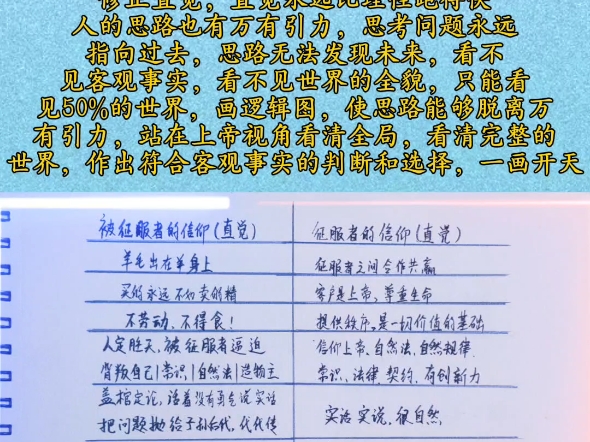 修正直觉，直觉永远比理性跑得快
人的思路也有万有引力，思考问题永远
指向过去，思路无法发现未来，看不
见客观事实，看不见世界的全貌，只能看
见50%的世界，画逻辑图，使思路能够脱离万
有引力，站在上帝视角看清全局，看清完整的
世界，作出符合客观事实的判断和选择，一画开天
被征服者的信仰(直觉)
征服者的信仰(直觉)
羊毛出在羊身上
征服者之间合作共赢
买的永远不如卖的精
客户是上帝，尊重生命
不劳动、不得食！
提供秩序，是一切价值的基础
人定胜天，被征服者逼迫
信仰上帝、自然法、自然规律
背叛自己|常识|自然法|造物主
常识、法律、契约、有创新力
盖棺定论，活着没有勇气说实话
实话实说，很自然
把问题抛给子孙后代，代代传